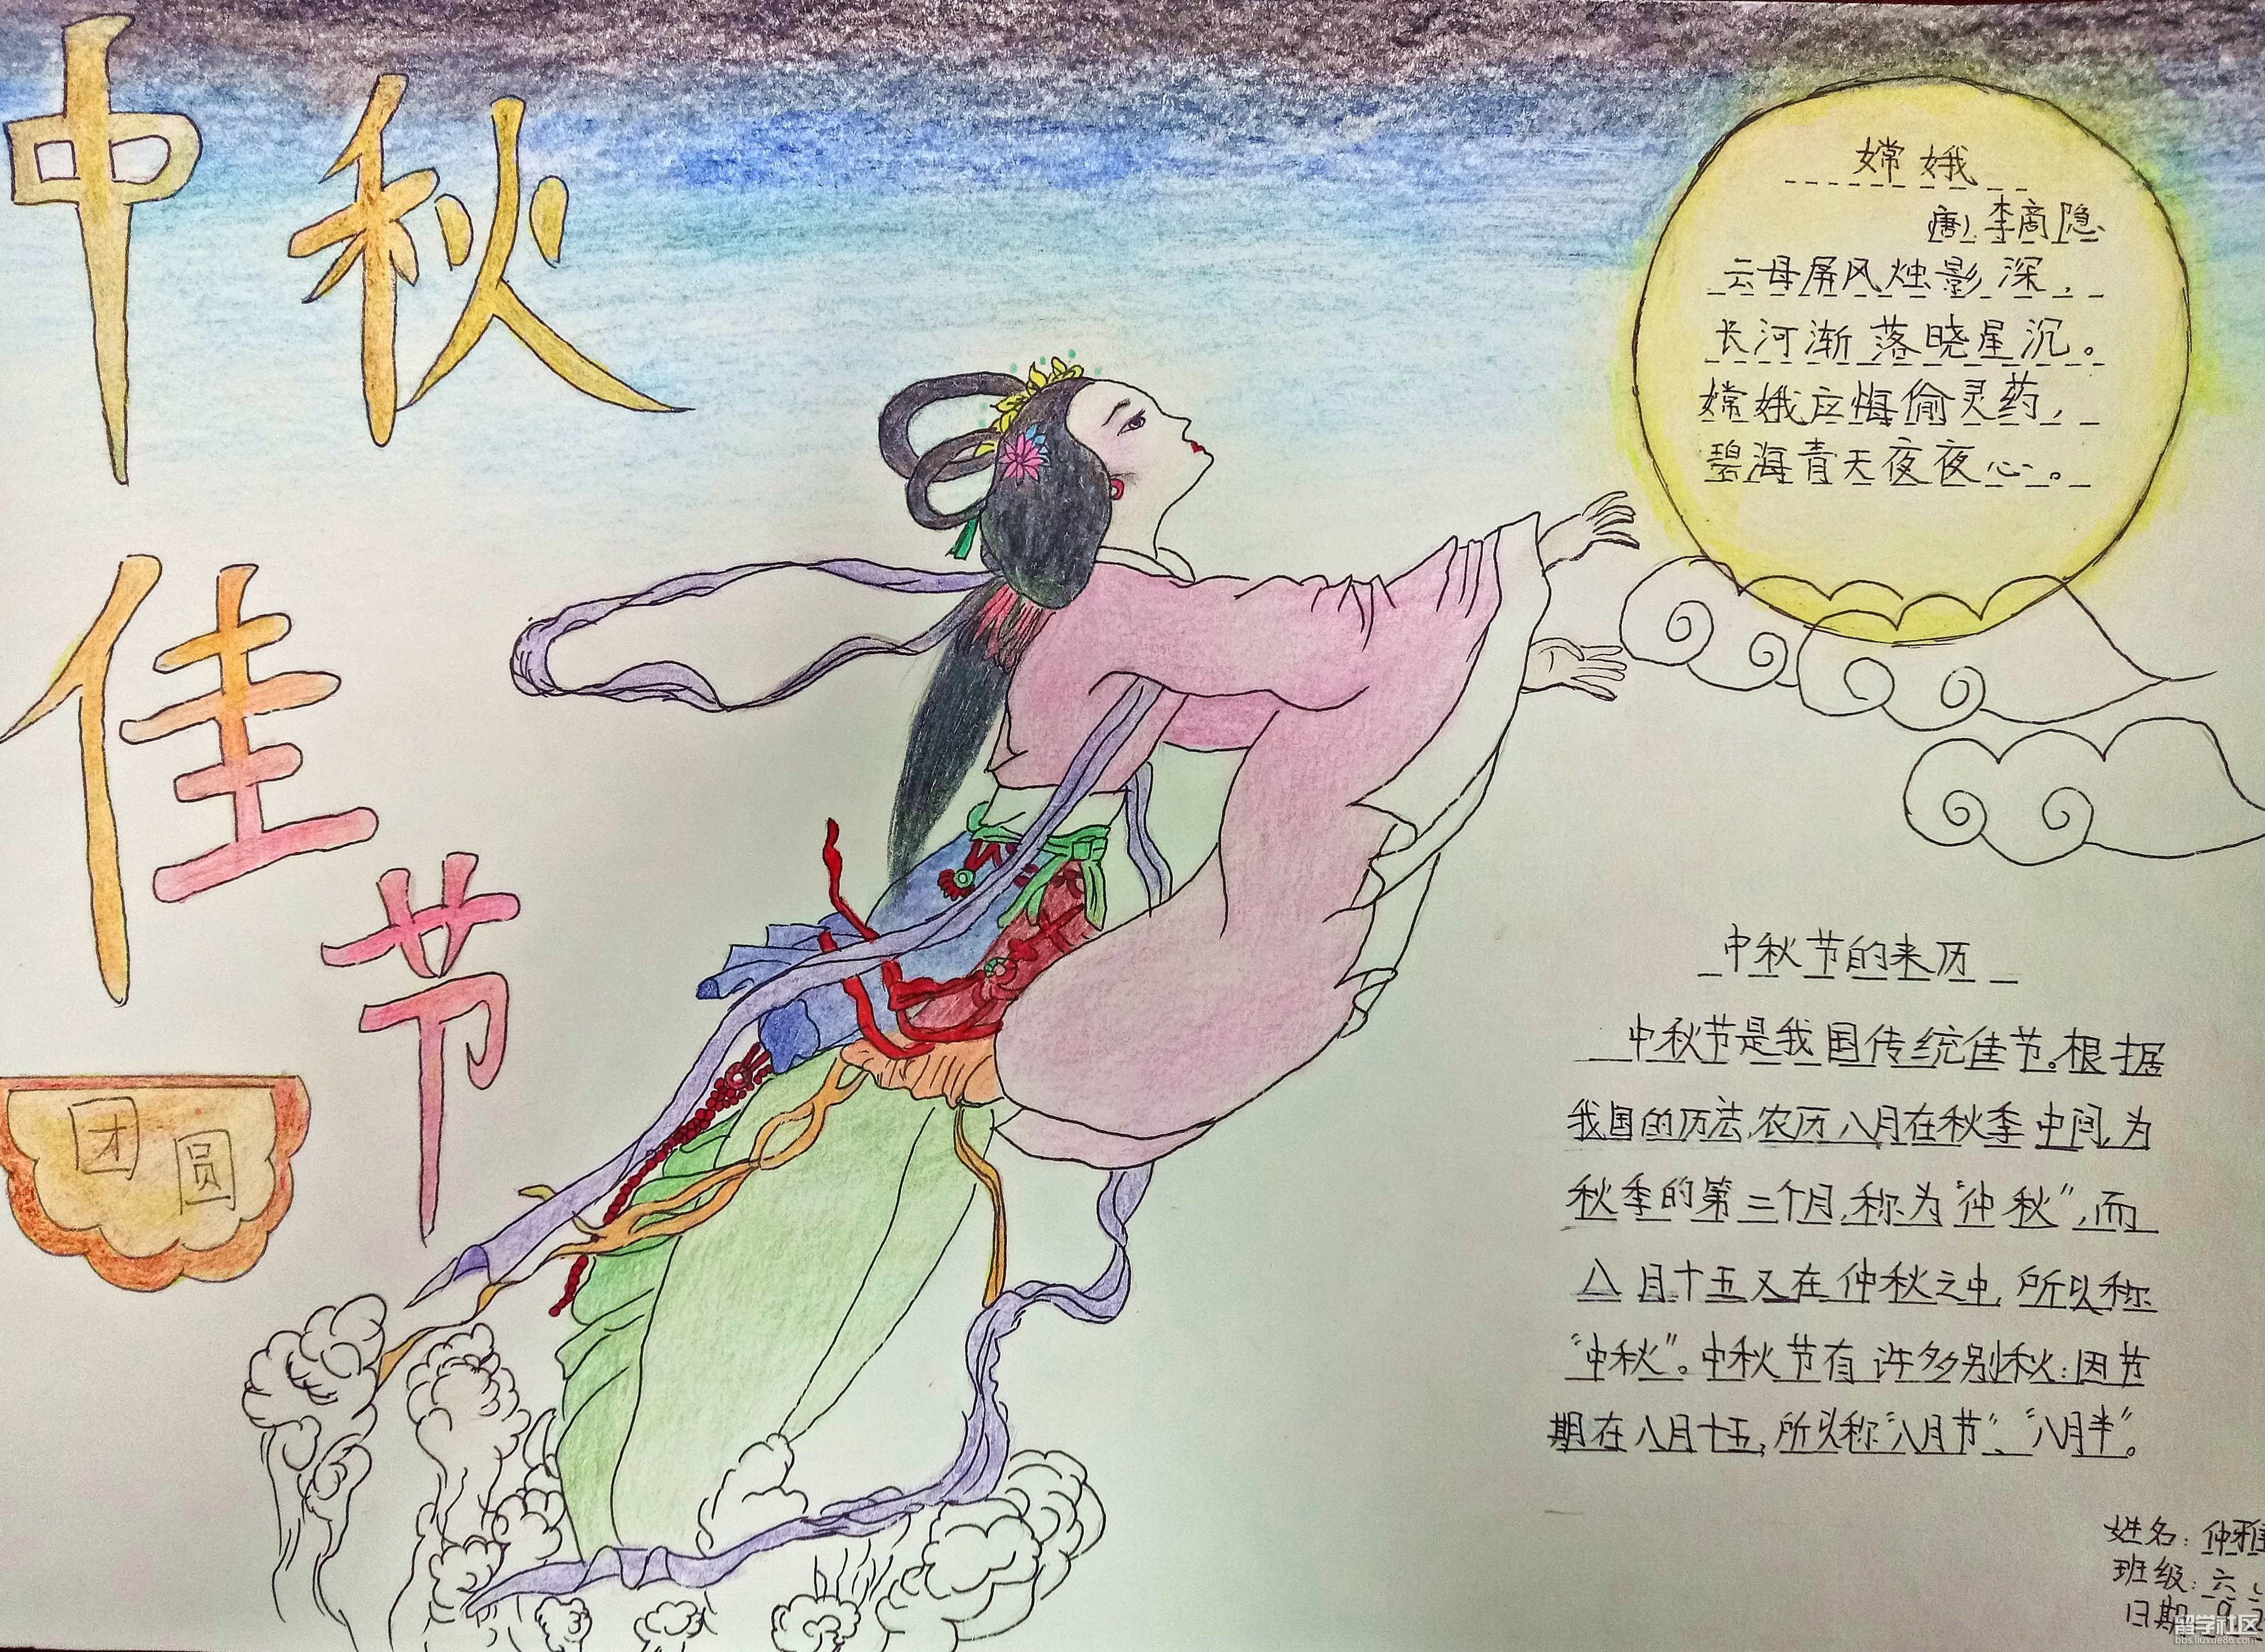 中秋
佳
节
团
圆
嫦娥
(唐)李商隐
云母屏风烛影深，
长河渐落晓星沉。
嫦娥应悔偷灵药，
碧海青天夜夜心。
中秋节的来历
中秋节是我国传统佳节。根据
我国的历法，农历八月在秋季中间，为
秋季的第三个月，称为“仲秋”，而
八月十五又在仲秋之中，所以称
“中秋”。中秋节有许多别秋：因节
期在八月十五，所以称“八月节”、“八月半”。
姓名：仲雅
班级：六
日期
留学社区
bbs.liuxue86.com